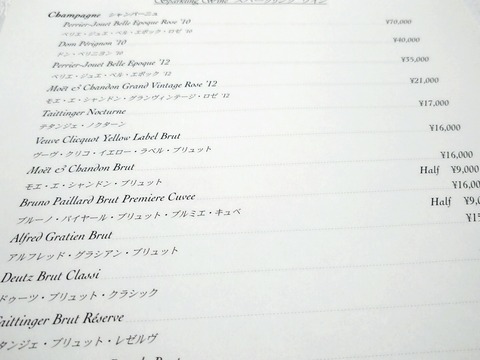 Sparkling Wine スパークリング ワイン
Champagne シャンパーニュ
Perrier-Jouët Belle Epoque Rose '10 ¥70,000
ペリエ・ジュエ・ベル・エポック・ロゼ '10
Dom Pérignon '10 ¥40,000
ドン・ペリニヨン '10
Perrier-Jouët Belle Epoque '12 ¥35,000
ペリエ・ジュエ・ベル・エポック '12
Moët & Chandon Grand Vintage Rose '12 ¥21,000
モエ・エ・シャンドン・グランヴィンテージ・ロゼ '12
Taittinger Nocturne ¥17,000
テタンジェ・ノクターン
Veuve Clicquot Yellow Label Brut ¥16,000
ヴーヴ・クリコ・イエロー・ラベル・ブリュット
Moët & Chandon Brut ¥16,000
モエ・エ・シャンドン・ブリュット Half ¥9,000
Bruno Paillard Brut Premiere Cuvee ¥16,00
ブルーノ・パイヤール・ブリュット・プルミエ・キュベ Half ¥9,0
Alfred Gratien Brut
アルフレッド・グラシアン・ブリュット
Deutz Brut Classi
ドゥーツ・ブリュット・クラシック
Taittinger Brut Réserve
タンジェ・ブリュット・レゼルヴ